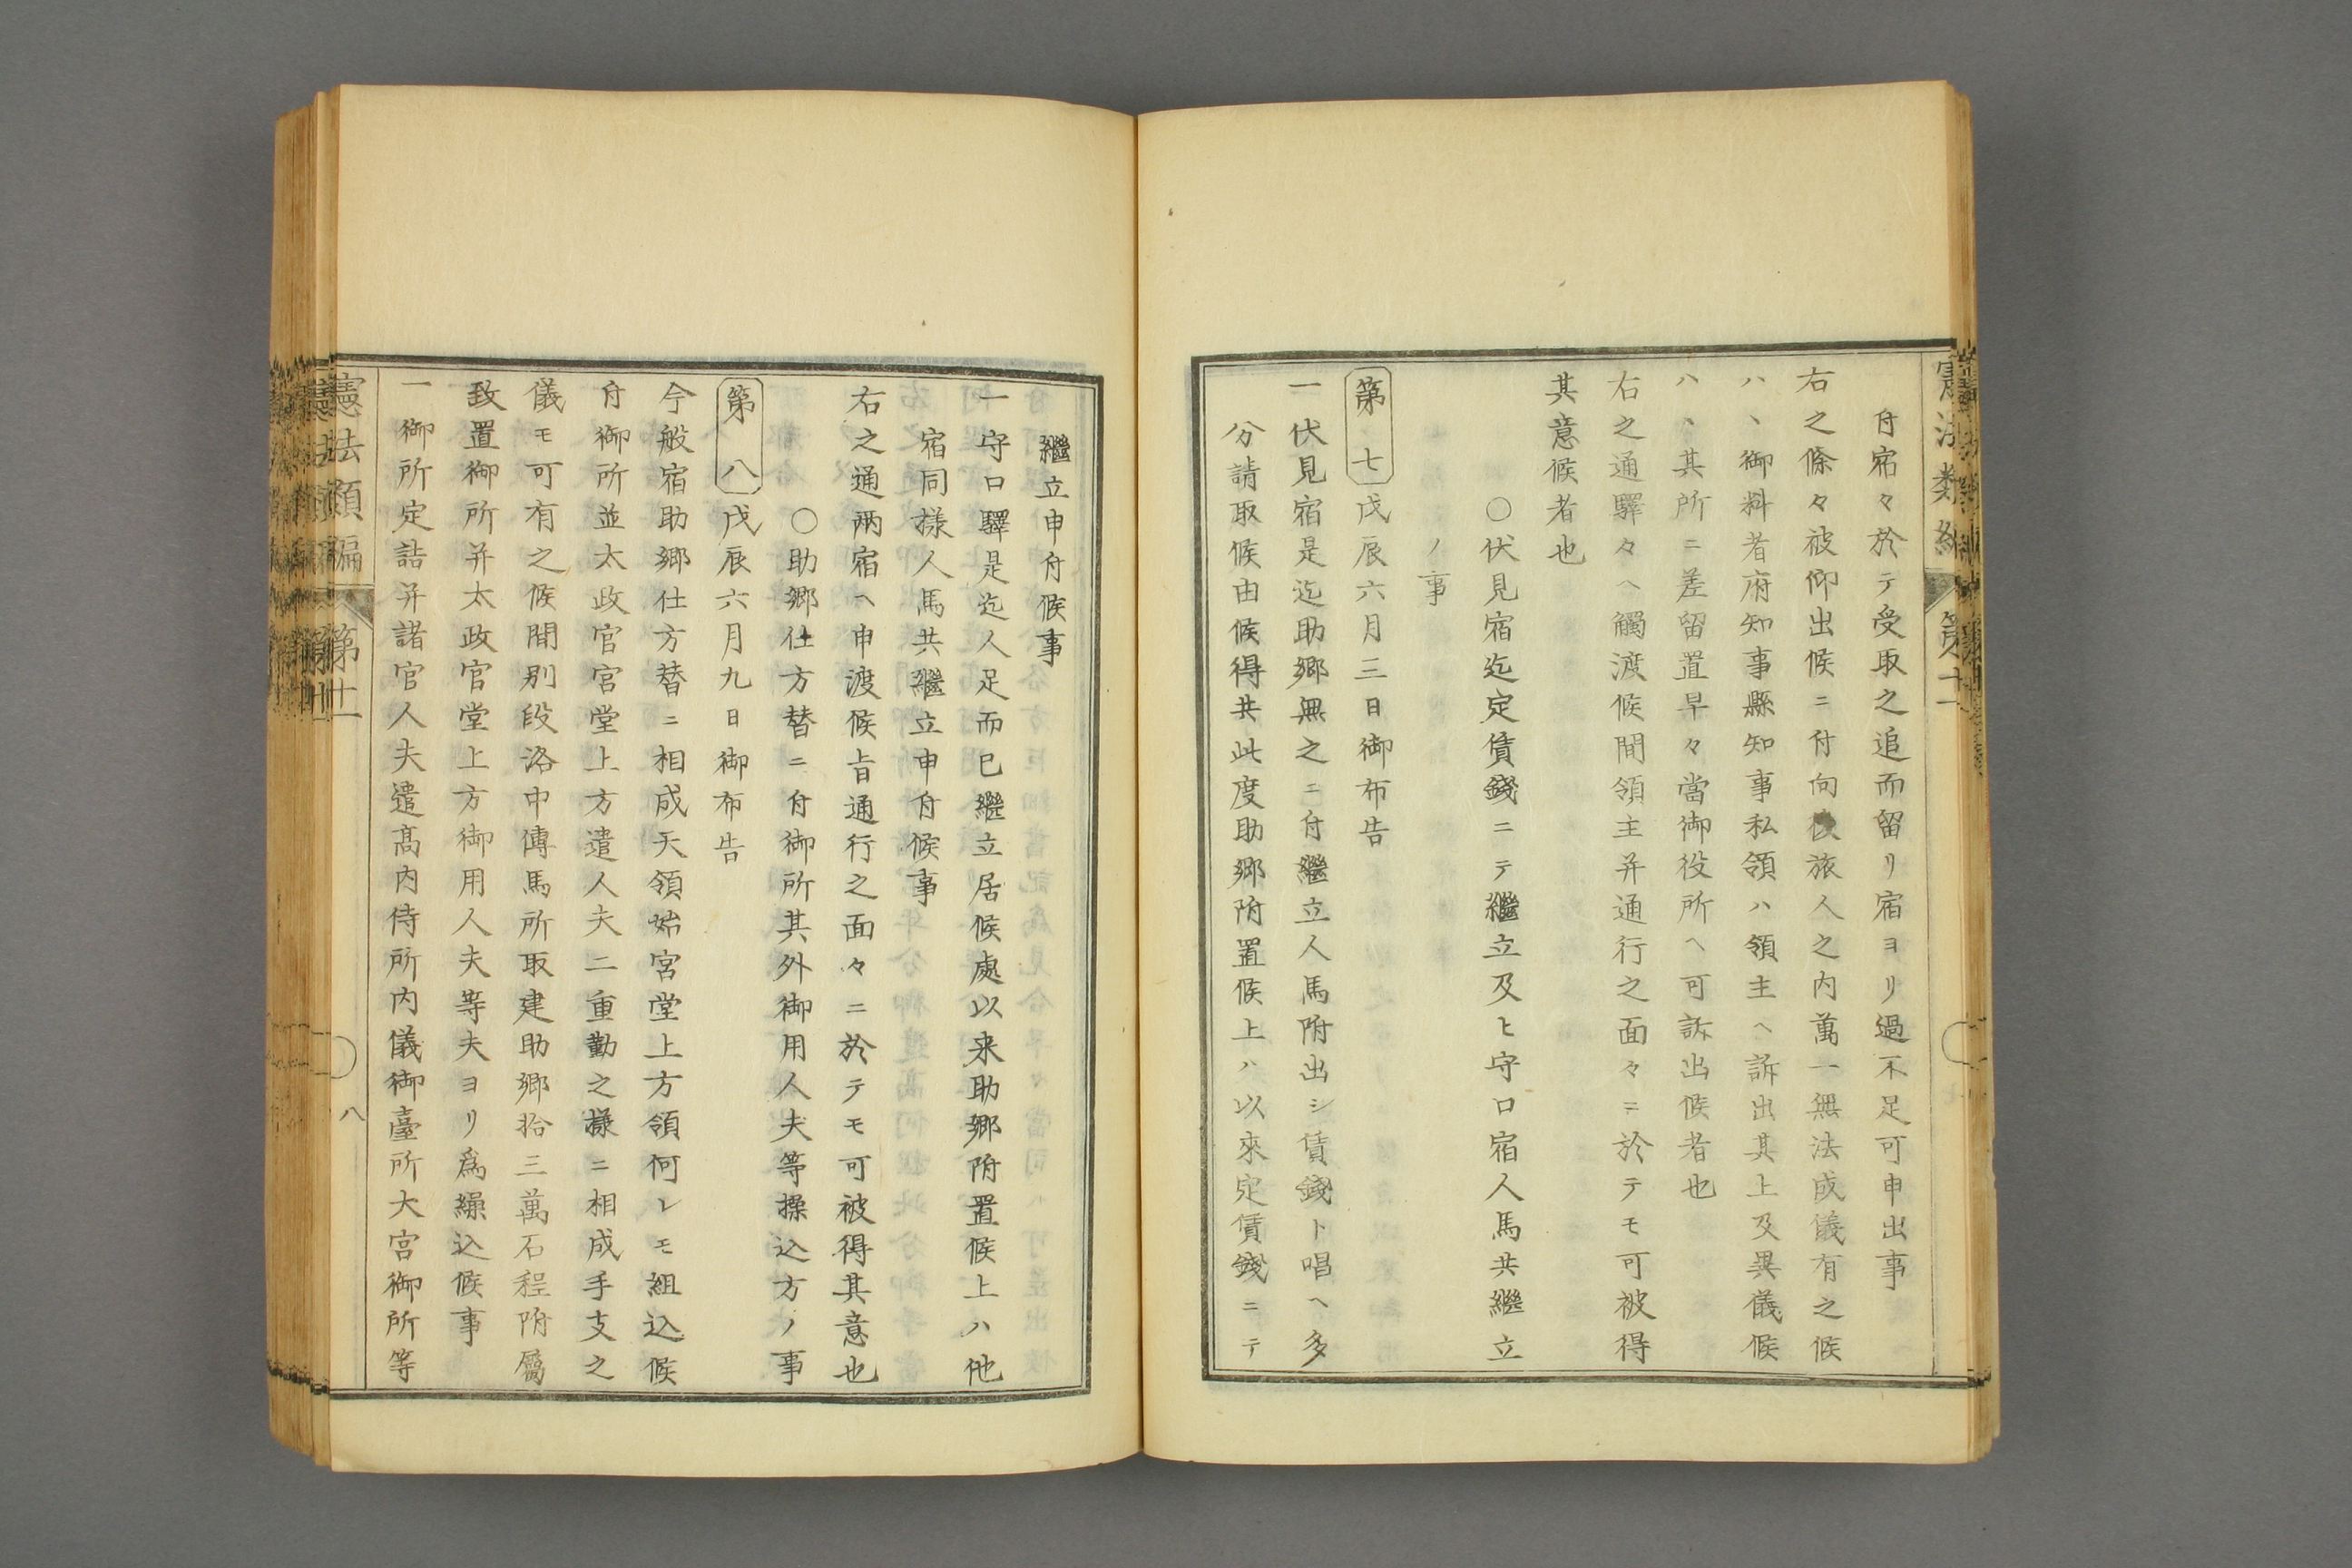 付宿々於テ受取之追而留リ宿ヨリ過不足可申出事
右之條々被仰出候ニ付向後旅人之内萬一無法成儀有之候
ハヽ御料者府知事縣知事私領ハ領主ヘ訴出其上及異儀候
ハヽ其所ニ差留置早々當御役所ヘ可訴出候者也
右之通驛々ヘ觸渡候間領主并通行之面々ニ於テモ可被得
其意候者也
○伏見宿迄定賃錢ニテ繼立及ヒ守口宿人馬共繼立
ノ事
第七 戊辰六月三日御布告
一伏見宿是迄助郷無之ニ付繼立人馬附出シ賃錢ト唱ヘ多
分請取候由候得共此度助郷附置候上ハ以來定賃錢ニテ
憲法類編 第十一
繼立申付候事
一守口驛是迄人足而已繼立居候處以来助郷附置候上ハ他
宿同樣人馬共繼立申付候事
右之通兩宿ヘ申渡候旨通行之面々ニ於テモ可被得其意也
○助郷仕方替ニ付御所其外御用人夫等操込方ノ事
第八 戊辰六月九日御布告
今般宿助郷仕方替ニ相成天領始宮堂上方領何レモ組込候
付御所並太政官宮堂上方遣人夫二重勤之樣ニ相成手支之
儀モ可有之候間別段洛中傳馬所取建助郷拾三萬石程附屬
致置御所并太政官堂上方御用人夫等夫ヨリ爲繰込候事
一御所定詰并諸官人夫遣高内侍所内儀御臺所大宮御所等
憲法類編 第十一 八